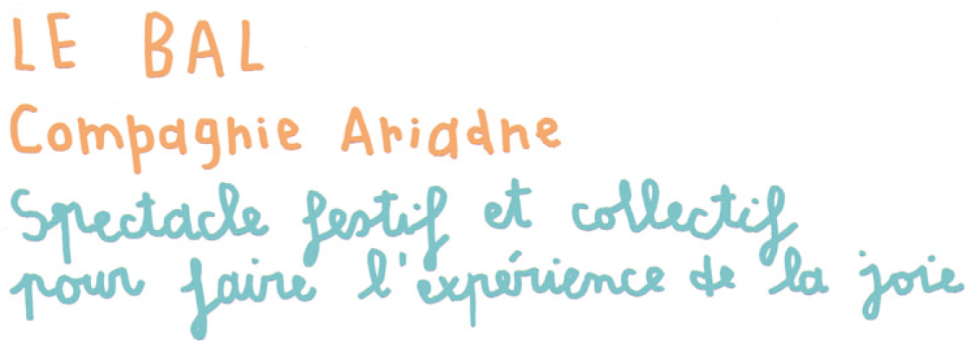 LE BAL
Compagnie Ariadne
Spectacle festif et collectif
pour faire l'expérience de la joie